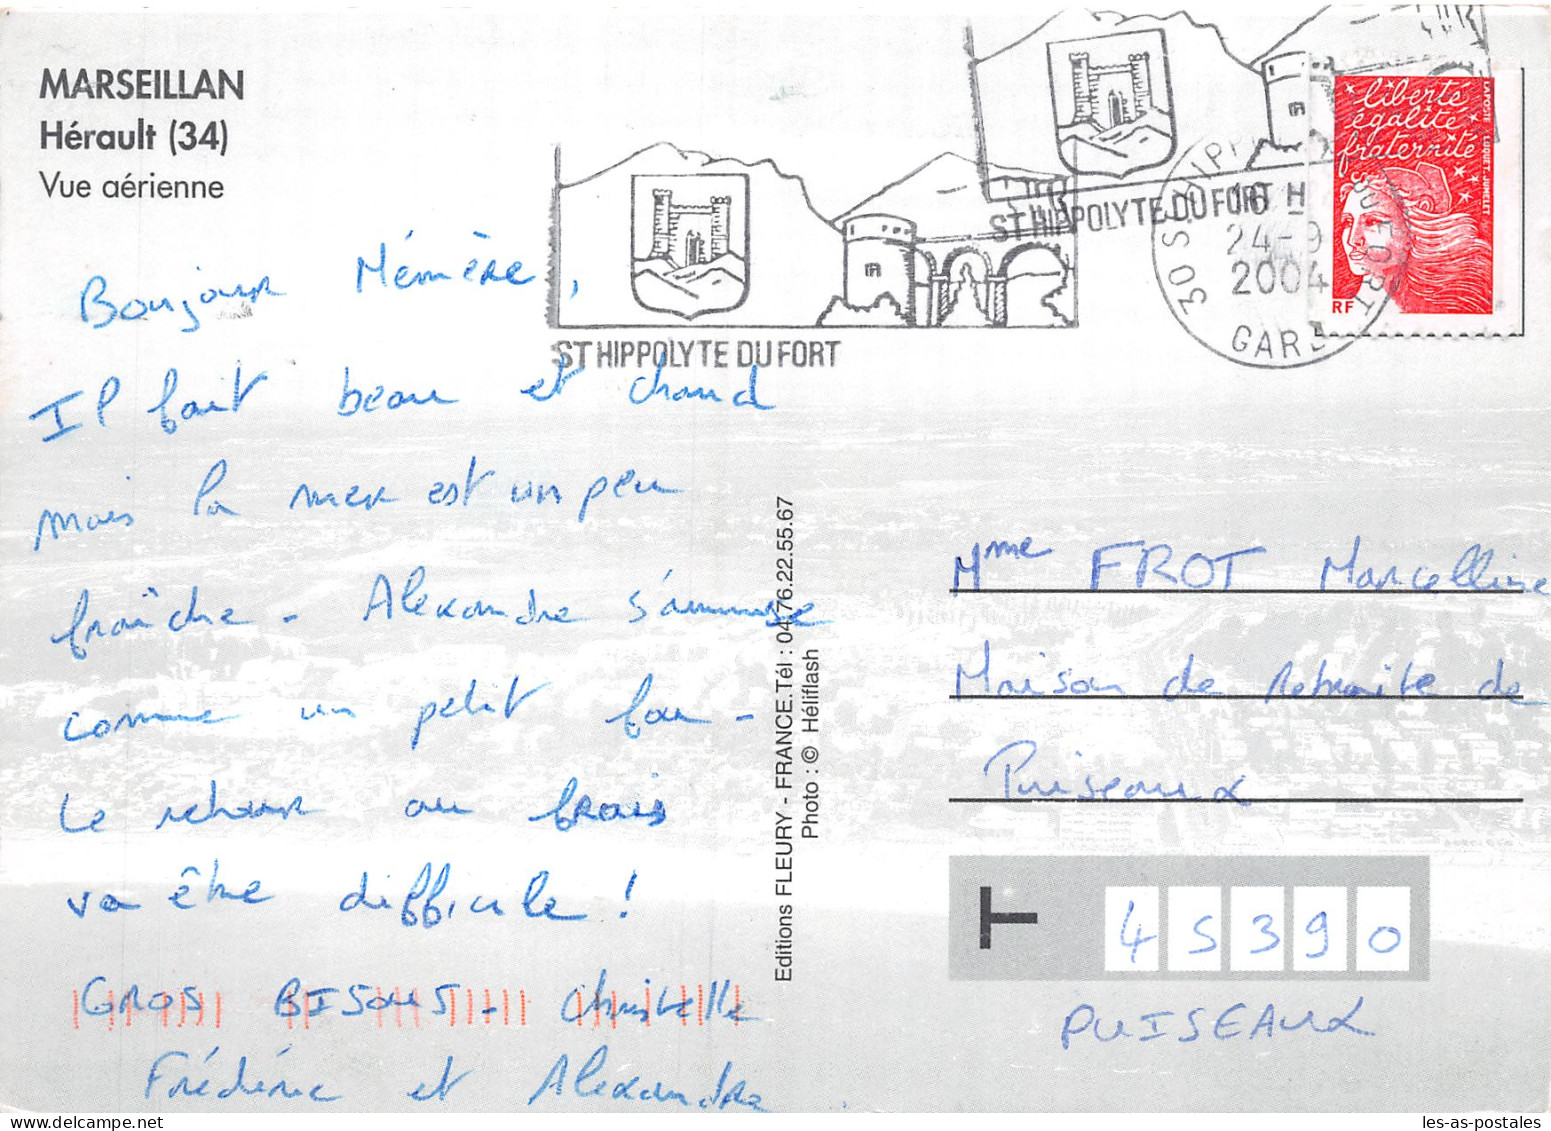 MARSEILLAN
Hérault (34)
Vue aérienne
ST HIPPOLYTE DU FORT
ST HIPPOLYTE DU FORT
30 ST HIPPOLYTE DU FORT
16 H
24-9
2004
GARD
liberté
égalité
fraternité
RF
LA POSTE
Bonjour Mémère,
Il fait beau et chaud
mais la mer est un peu
fraîche - Alexandre s'ammuse
comme un petit fou -
Le retour au frais
va être difficile !
GROS BISOUS - Christelle
Frédéric et Alexandre .
Editions FLEURY - FRANCE.Tél : 04.76.22.55.67
Photo : © Héliflash
Mme FROT Marcelline
Maison de retraite de
Puiseaux
T 45390
PUISEAUX
les-as-postales
delcampe.net